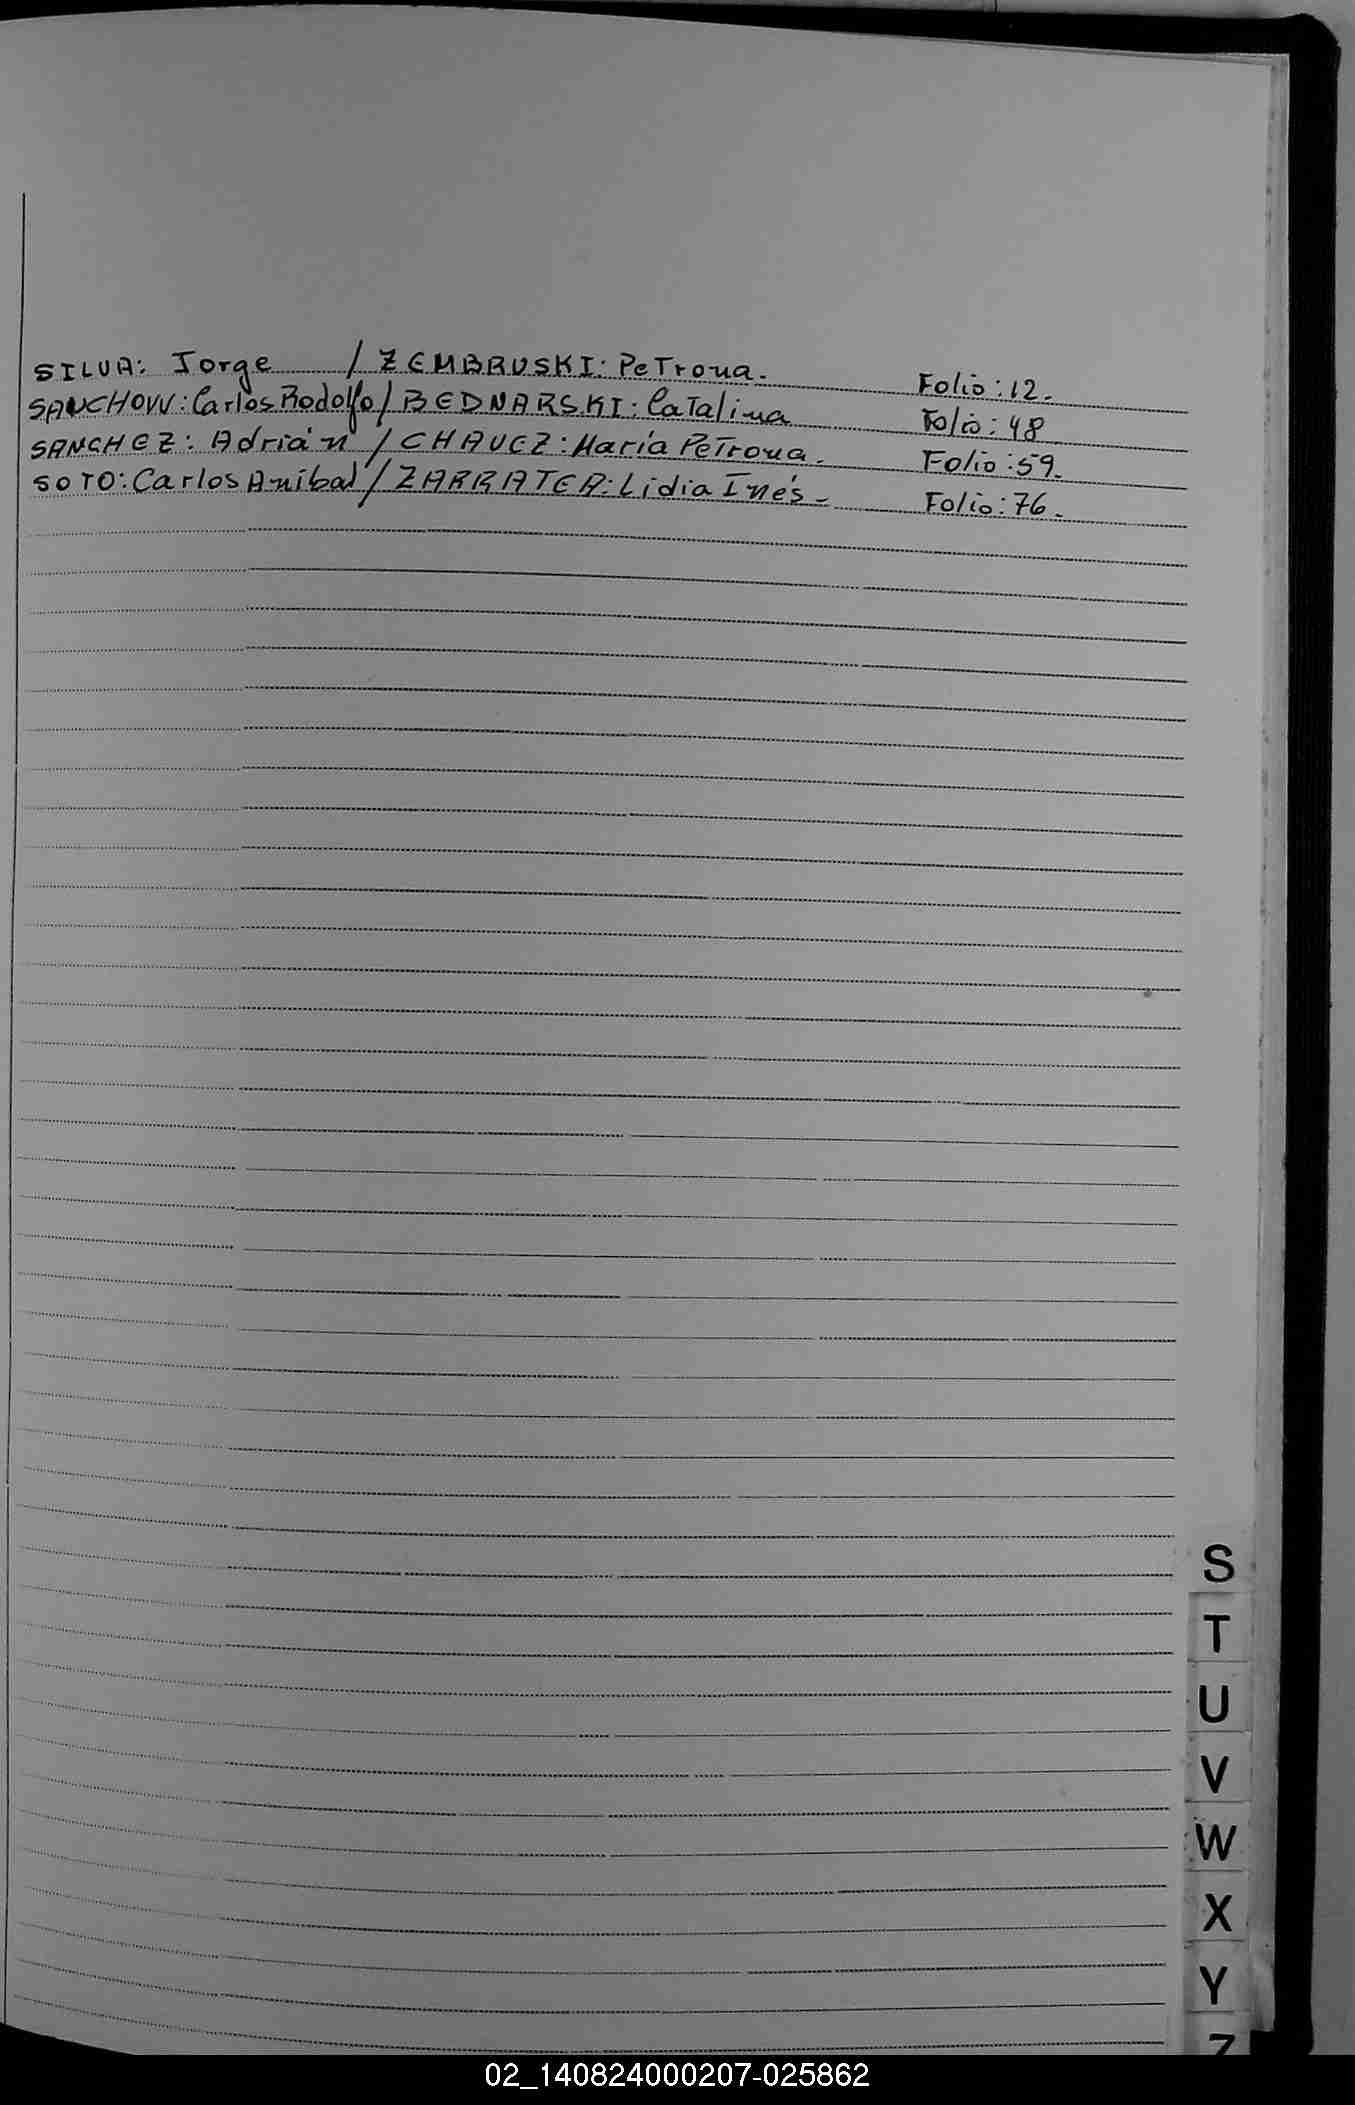 SILVA: Jorge / ZEMBRUSKI: Petrona. Folio: 12.
SANCHOW: Carlos Rodolfo / BEDNARSKI: Catalina Folio: 48
SANCHEZ: Adrián / CHAVEZ: María Petrona. Folio: 59.
SOTO: Carlos Anibal / ZARRATEA: Lidia Inés. Folio: 76.
S
T
U
V
W
X
Y
Z
02_140824000207-025862